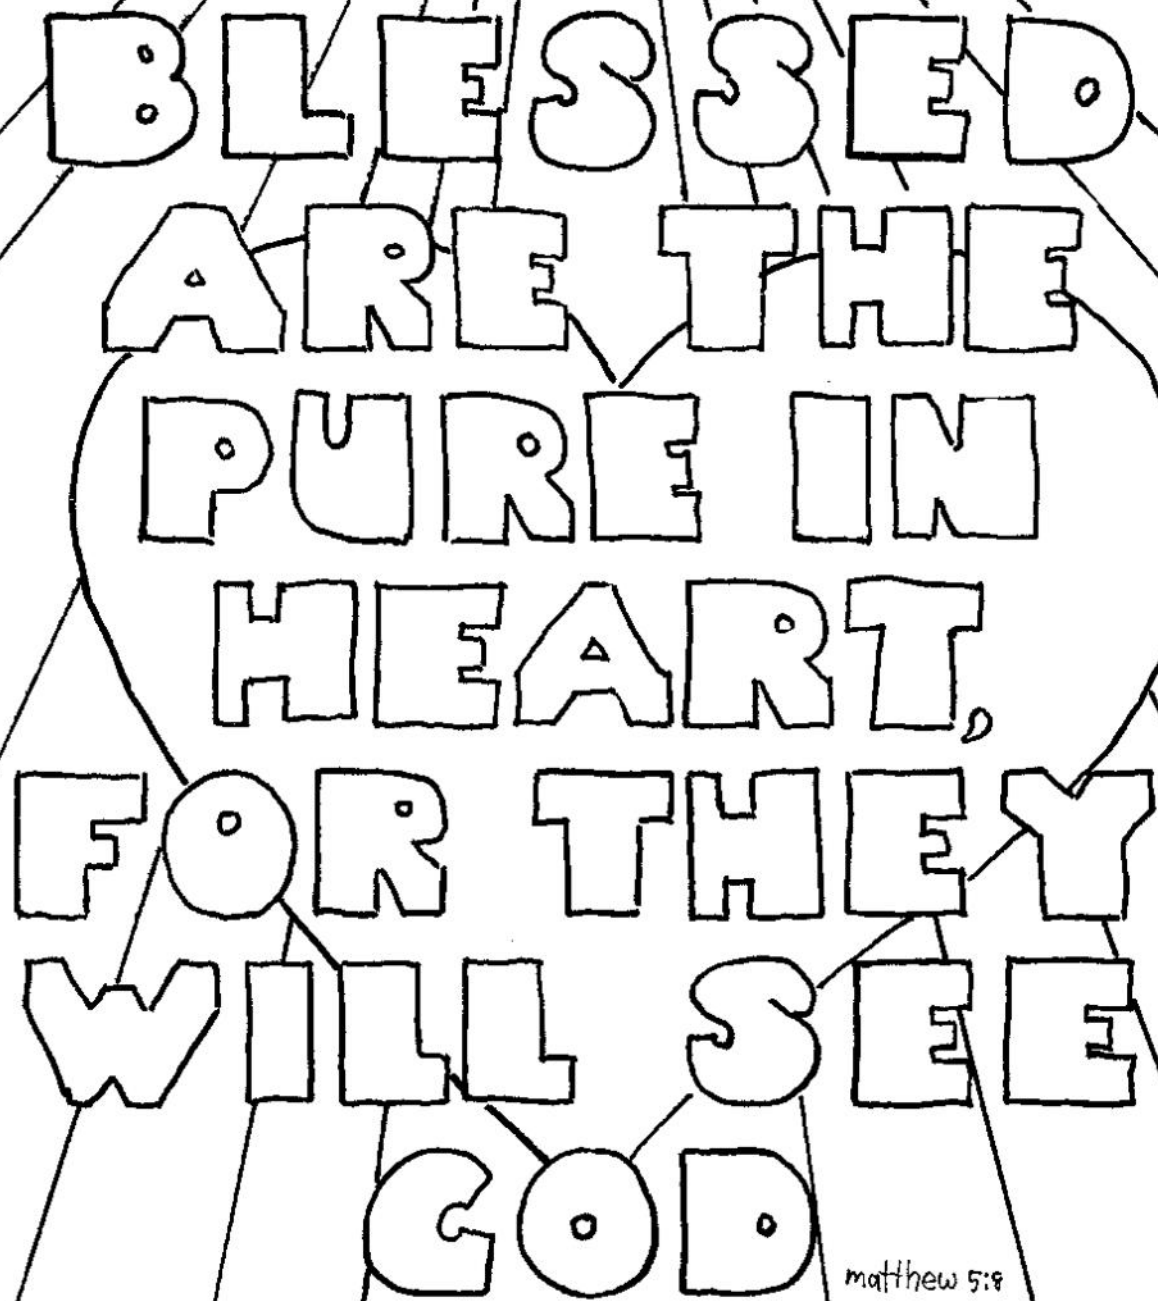 BLESSED
ARE THE
PURE IN
HEART,
FOR THEY
WILL SEE
GOD
matthew 5:8